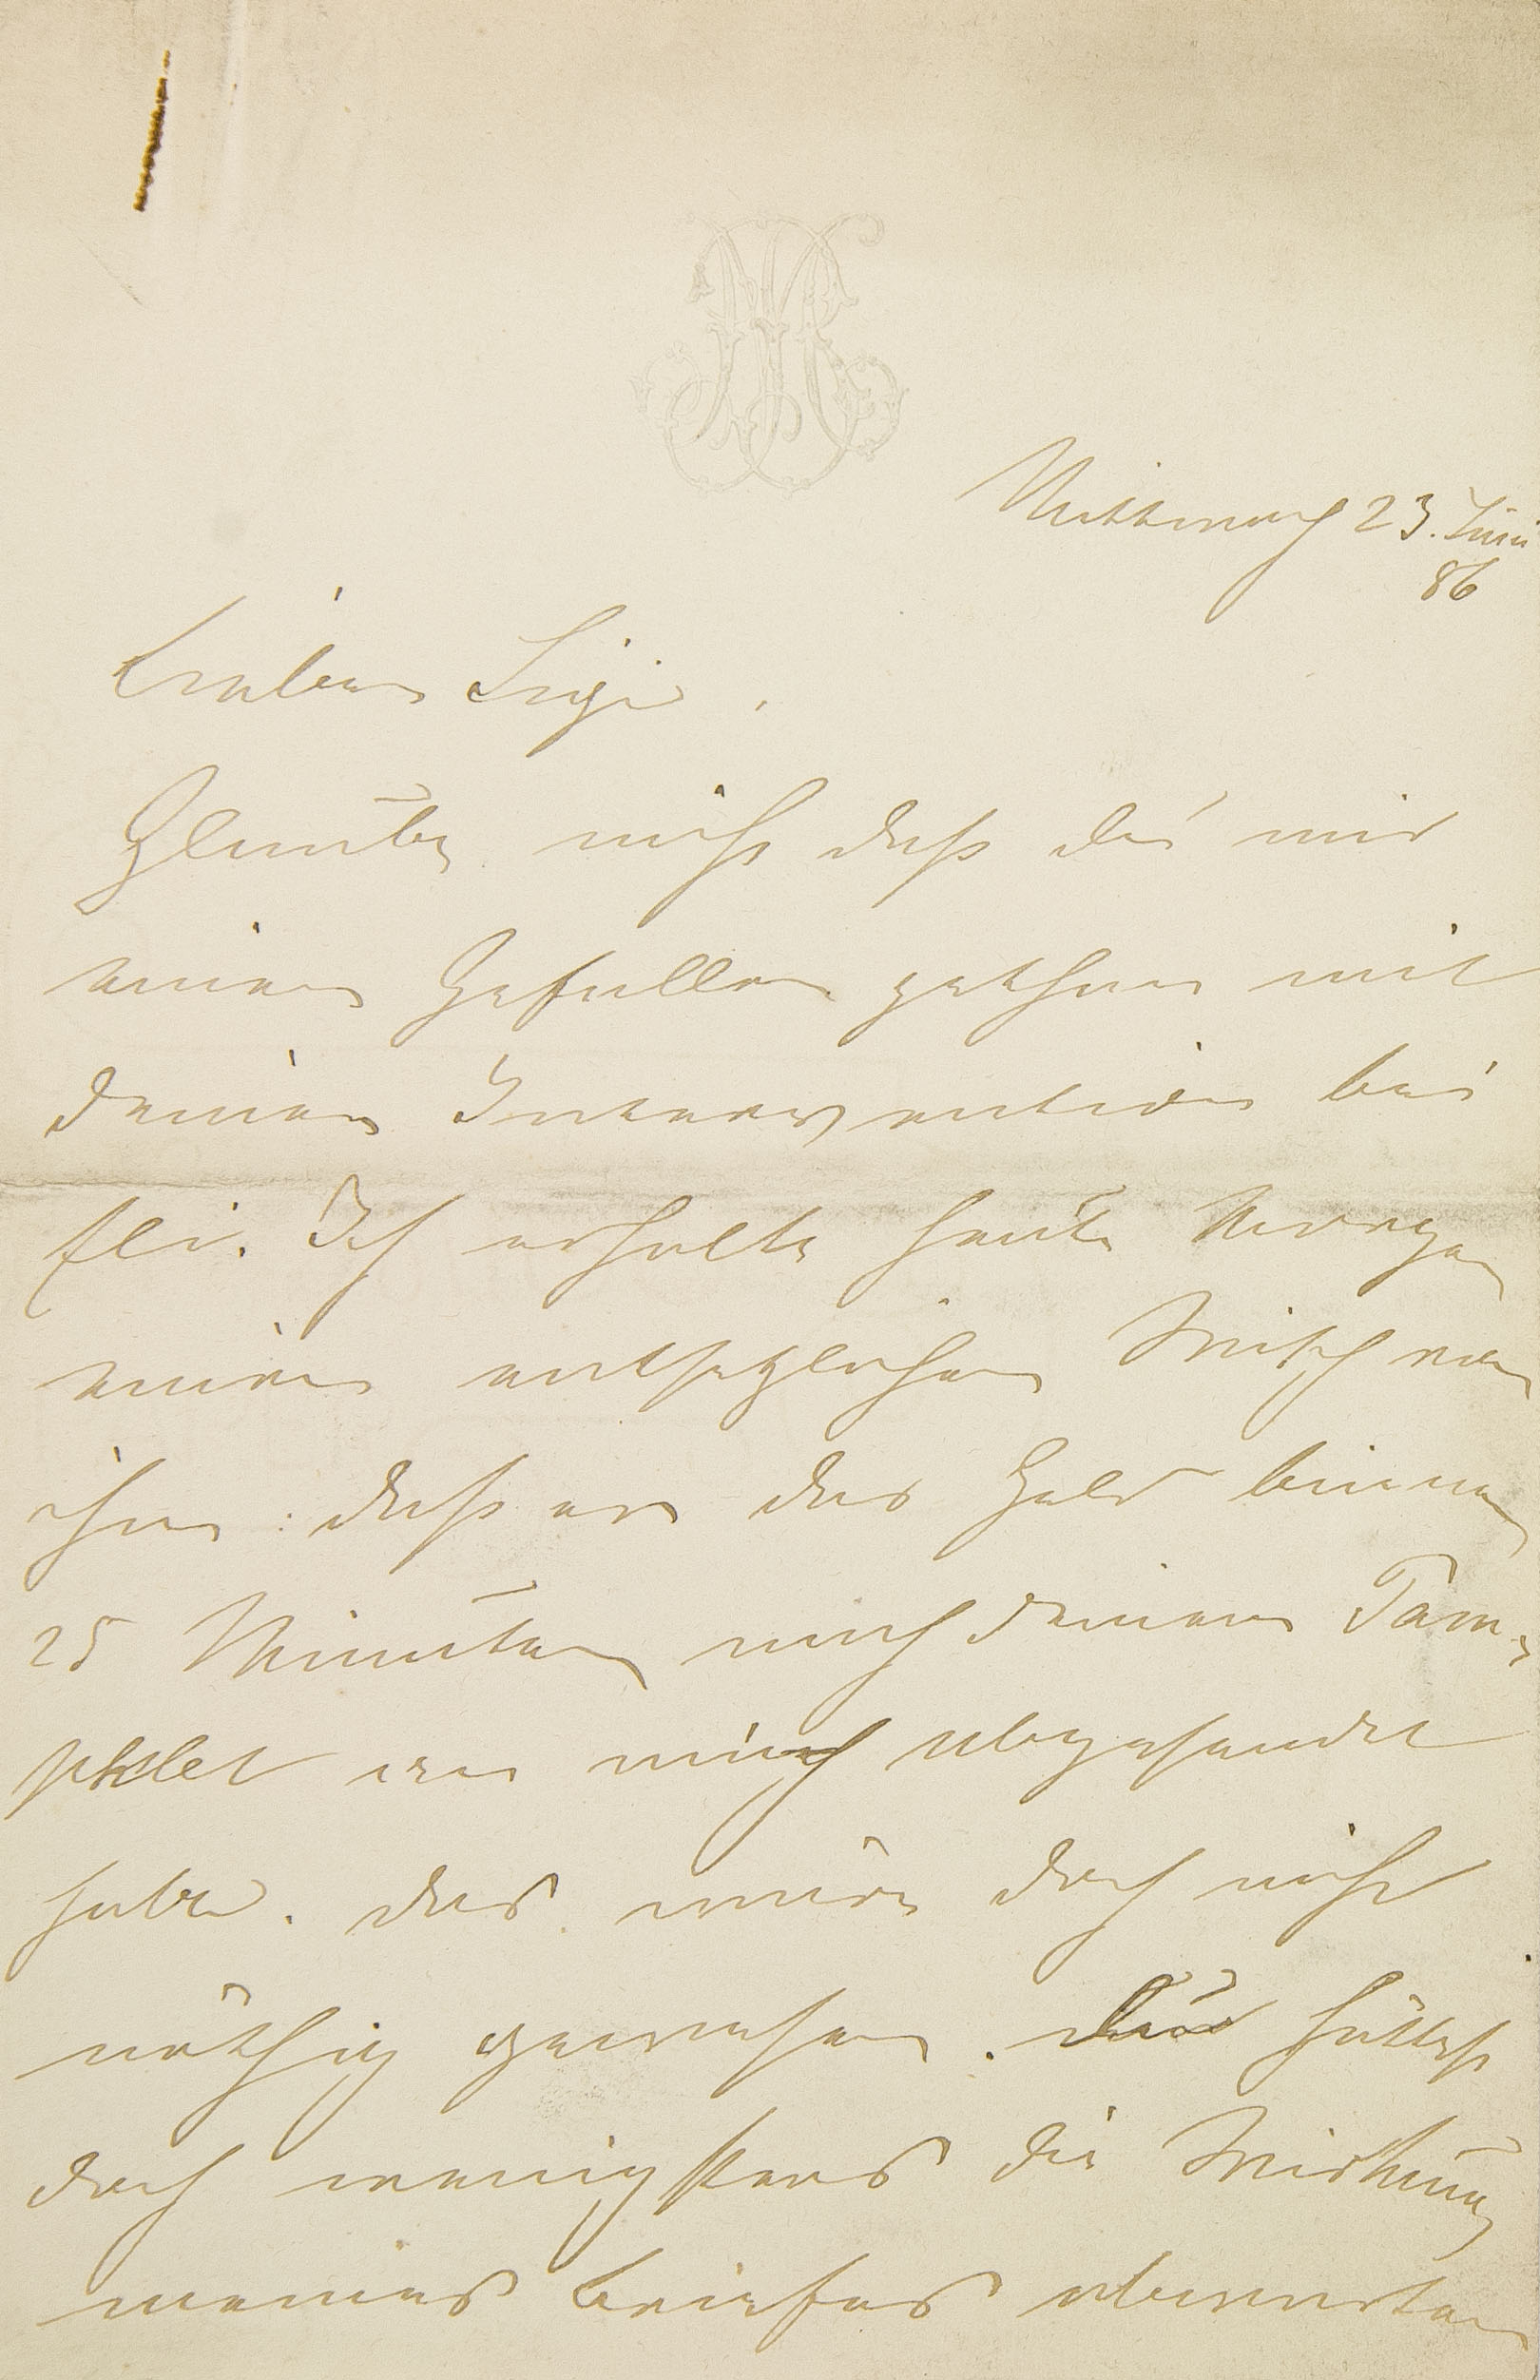 Mittwoch 23. Juni
86
Lieber Sigi.
Glaube nicht daß du mir
einen Gefallen gethan mit
deiner Intervention bei
Eli. Ich erhalte heute Morgen
einen entsetzlichen Wisch von
ihm: daß er das Geld binnen
25 Minuten nach deinem Pam-
phlet an mich abgesandt
habe. das wäre doch nicht
nöthig gewesen. du hättest
doch wenigstens die Wirkung
meines Briefes abwarten